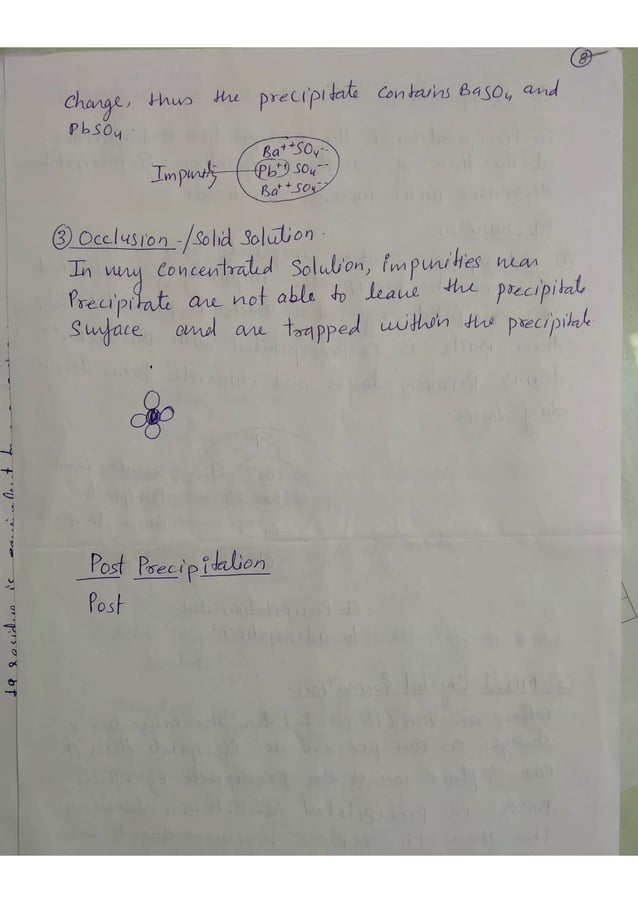 8
change, thus the precipitate contains BaSO4 and
PbSO4.
Ba++SO4--
Impurity Pb++ SO4--
Ba++SO4--
③ Occlusion -/Solid Solution.
In very concentrated Solution, impurities near
Precipitate are not able to leave the precipitate
Surface and are trapped within the precipitate
Post Precipitation
Post